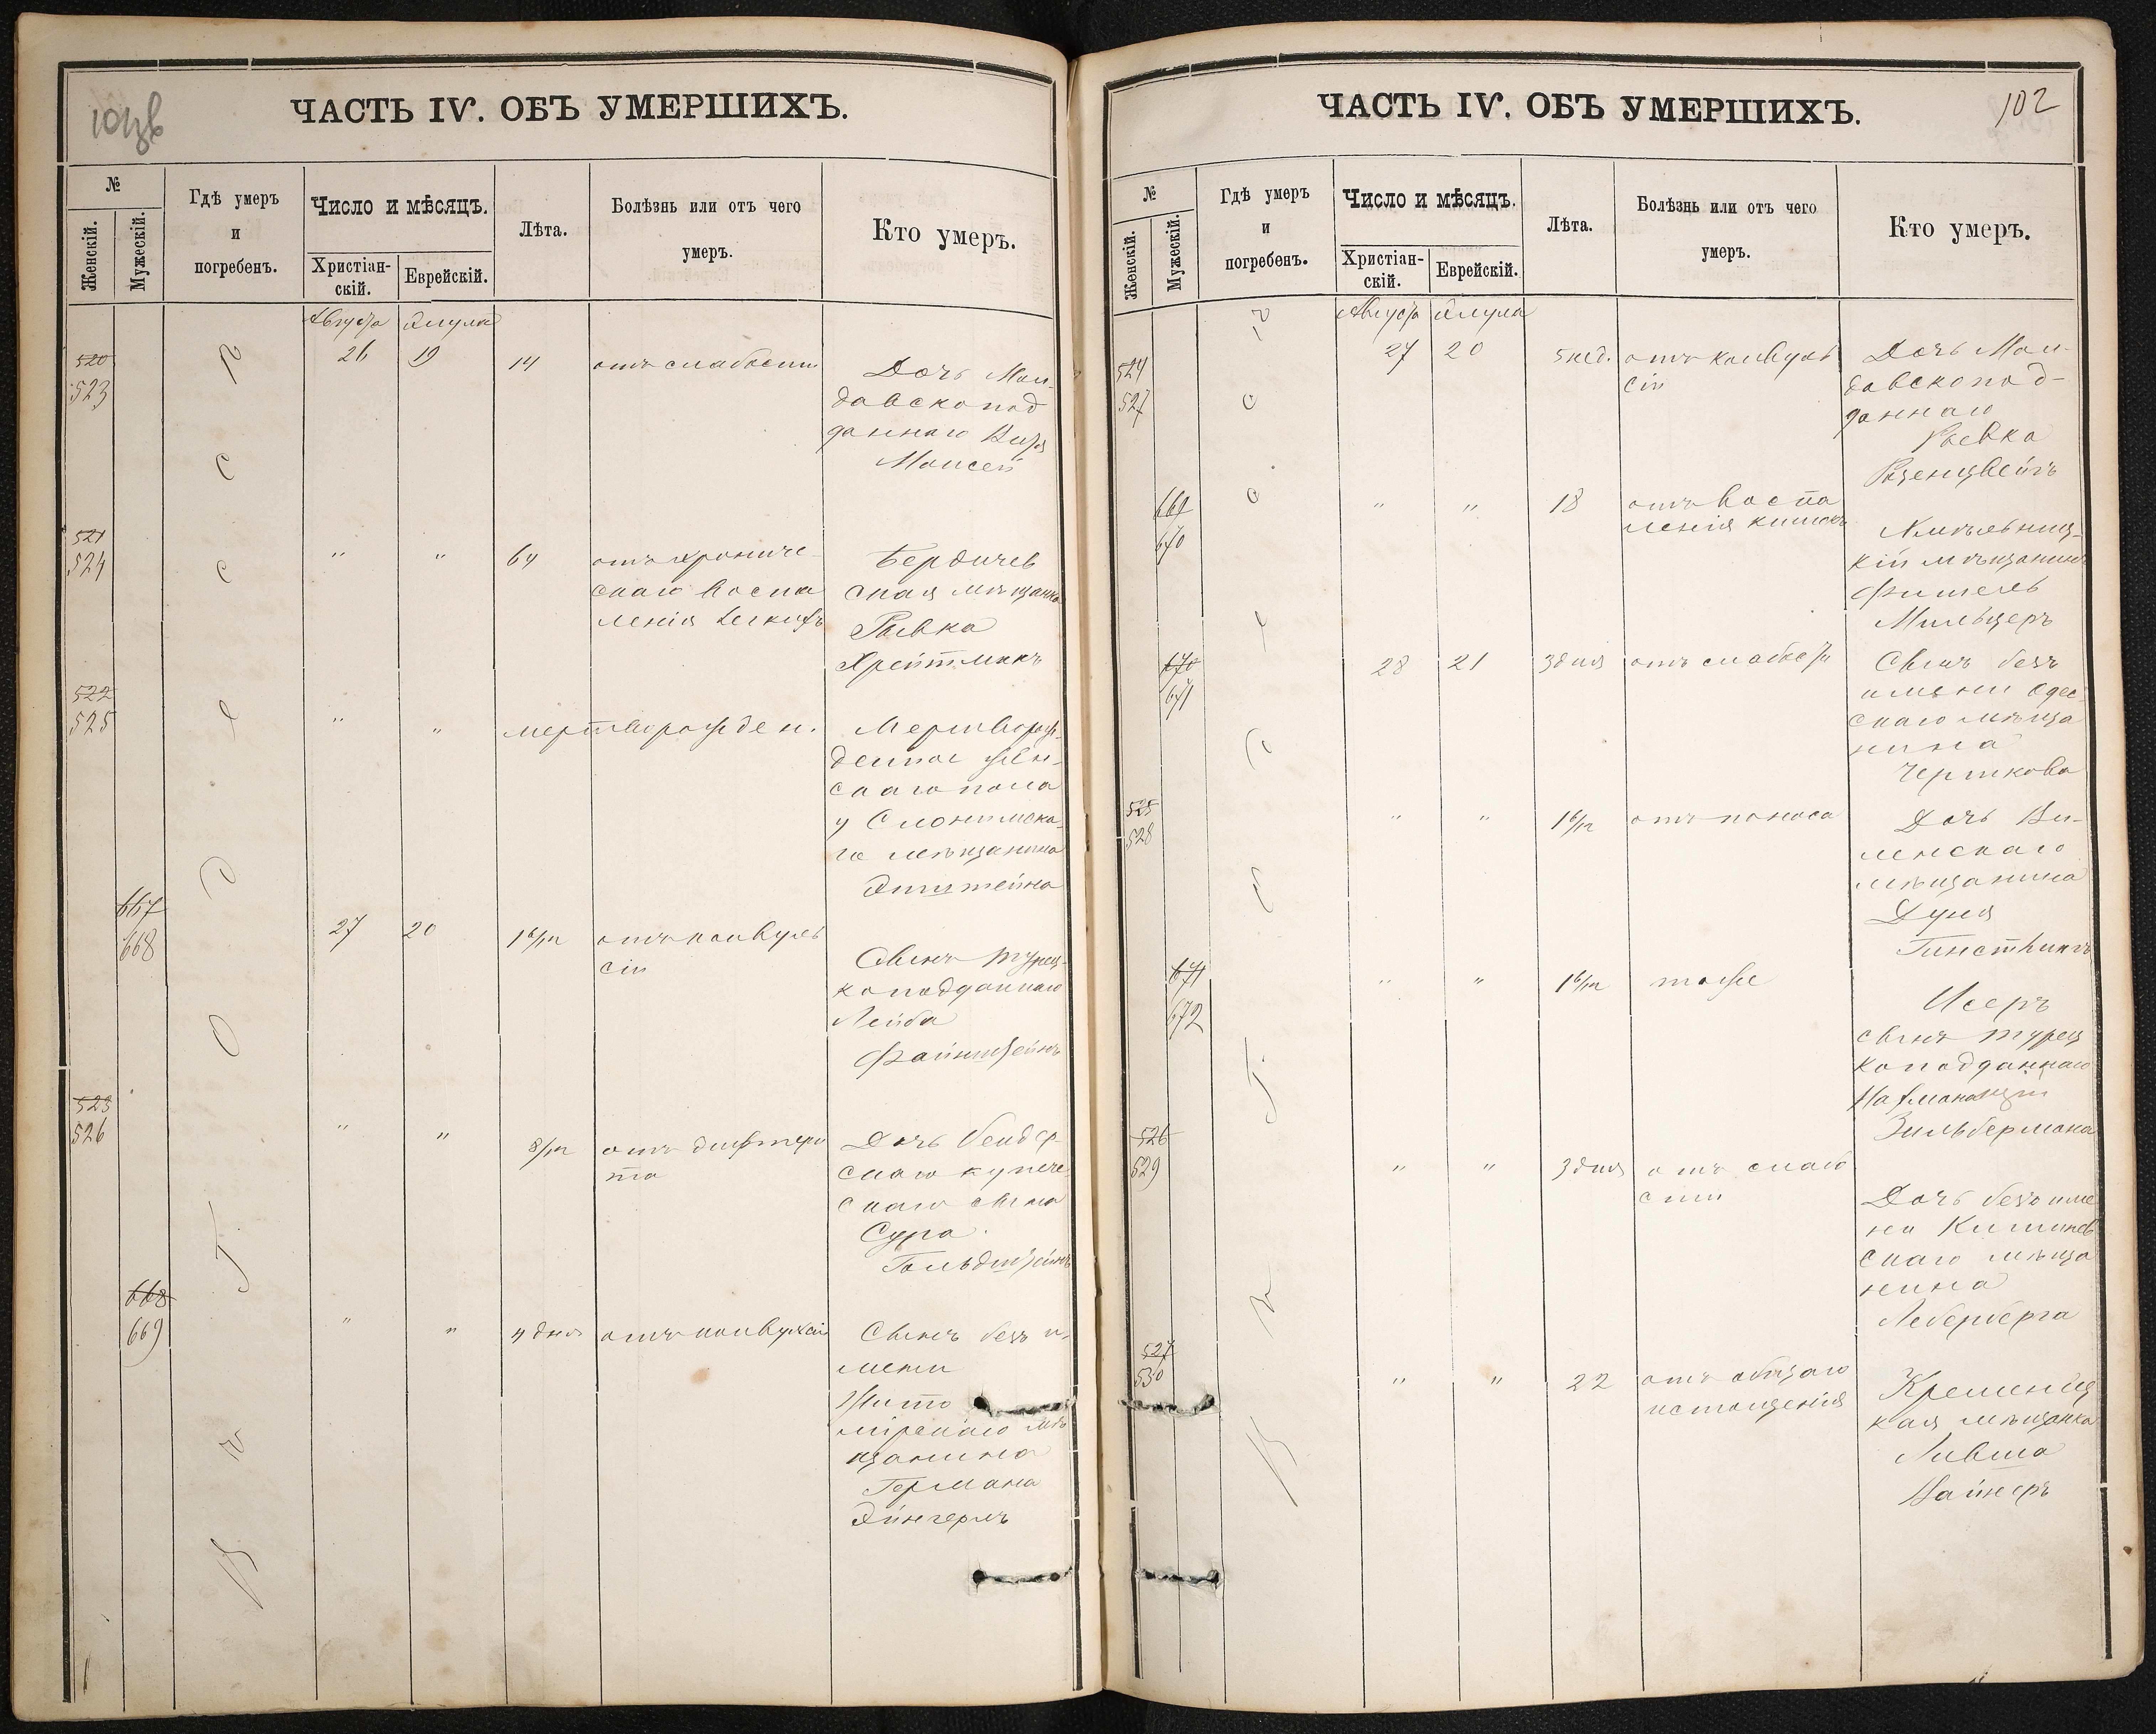 ЧАСТЬ IV. ОБЪ УМЕРШИХЪ.
№
Женскій.
Мужескій.
Гдѣ умеръ
и
погребенъ.
Число и мѣсяцъ.
Христіан-
скій.
Еврейскій.
Лѣта.
Болѣзнь или отъ чего
умеръ.
Кто умеръ.
Августа Элула
520
523
26 19 14 отъ слабости
Дочь Мол-
давскопод
даннаго
Моисей
521
524
" " 64 отъ хрониче
скаго воспа
ленія легкихъ
Бердичев
ская мѣщанка
Рывка
Хрейтманъ
522
525
" " мертворожден.
Мертворож-
денное жен-
скаго пола
у Слонимска-
го мѣщанина
Эпштейна
667
668
27 20 1 6/12 отъ конвуль
сіи
Сынъ турец-
коподданнаго
Лейба
Файнштейнъ
523
526
" " 8/12 отъ дифтери
та
Дочь бендер
скаго купече
скаго сына
Сура
Гольдштейнъ
668
669
" " 4 дня отъ конвульсіи
Сынъ безъ и-
мени
Жито
мірскаго мѣ
щанина
Германа
ЧАСТЬ IV. ОБЪ УМЕРШИХЪ.
102
№
Женскій.
Мужескій.
Гдѣ умеръ
и
погребенъ.
Число и мѣсяцъ.
Христіан-
скій.
Еврейскій.
Лѣта.
Болѣзнь или отъ чего
умеръ.
Кто умеръ.
Августа Элула
524
527
27 20 5 нед. отъ конвуль
сіи
Дочь Мол-
давскопод-
даннаго
Рывка
Розенцвейгъ
669
670
" " 18 отъ воспа
ленія кишокъ
Хмѣльниц-
кій мѣщанинъ
Фишель
Мильцеръ
670
671
28 21 3 дня отъ слабости
Сынъ безъ
имени Одес
скаго мѣща
нина
Черткова
525
528
" " 1 6/12 отъ поноса
Дочь Ви-
ленскаго
мѣщанина
Дуня
671
672
" " 1 6/12 тоже
Исеръ
сынъ турец
коподданнаго
Зильбермана
526
529
" " 3 дня отъ слабо
сти
Дочь безъ име
ни Кишинев
скаго мѣща
нина
Леберберга
527
530
" " 22 отъ общаго
истощенія
Кременец
кая мѣщанка
Ливша
Вайнеръ